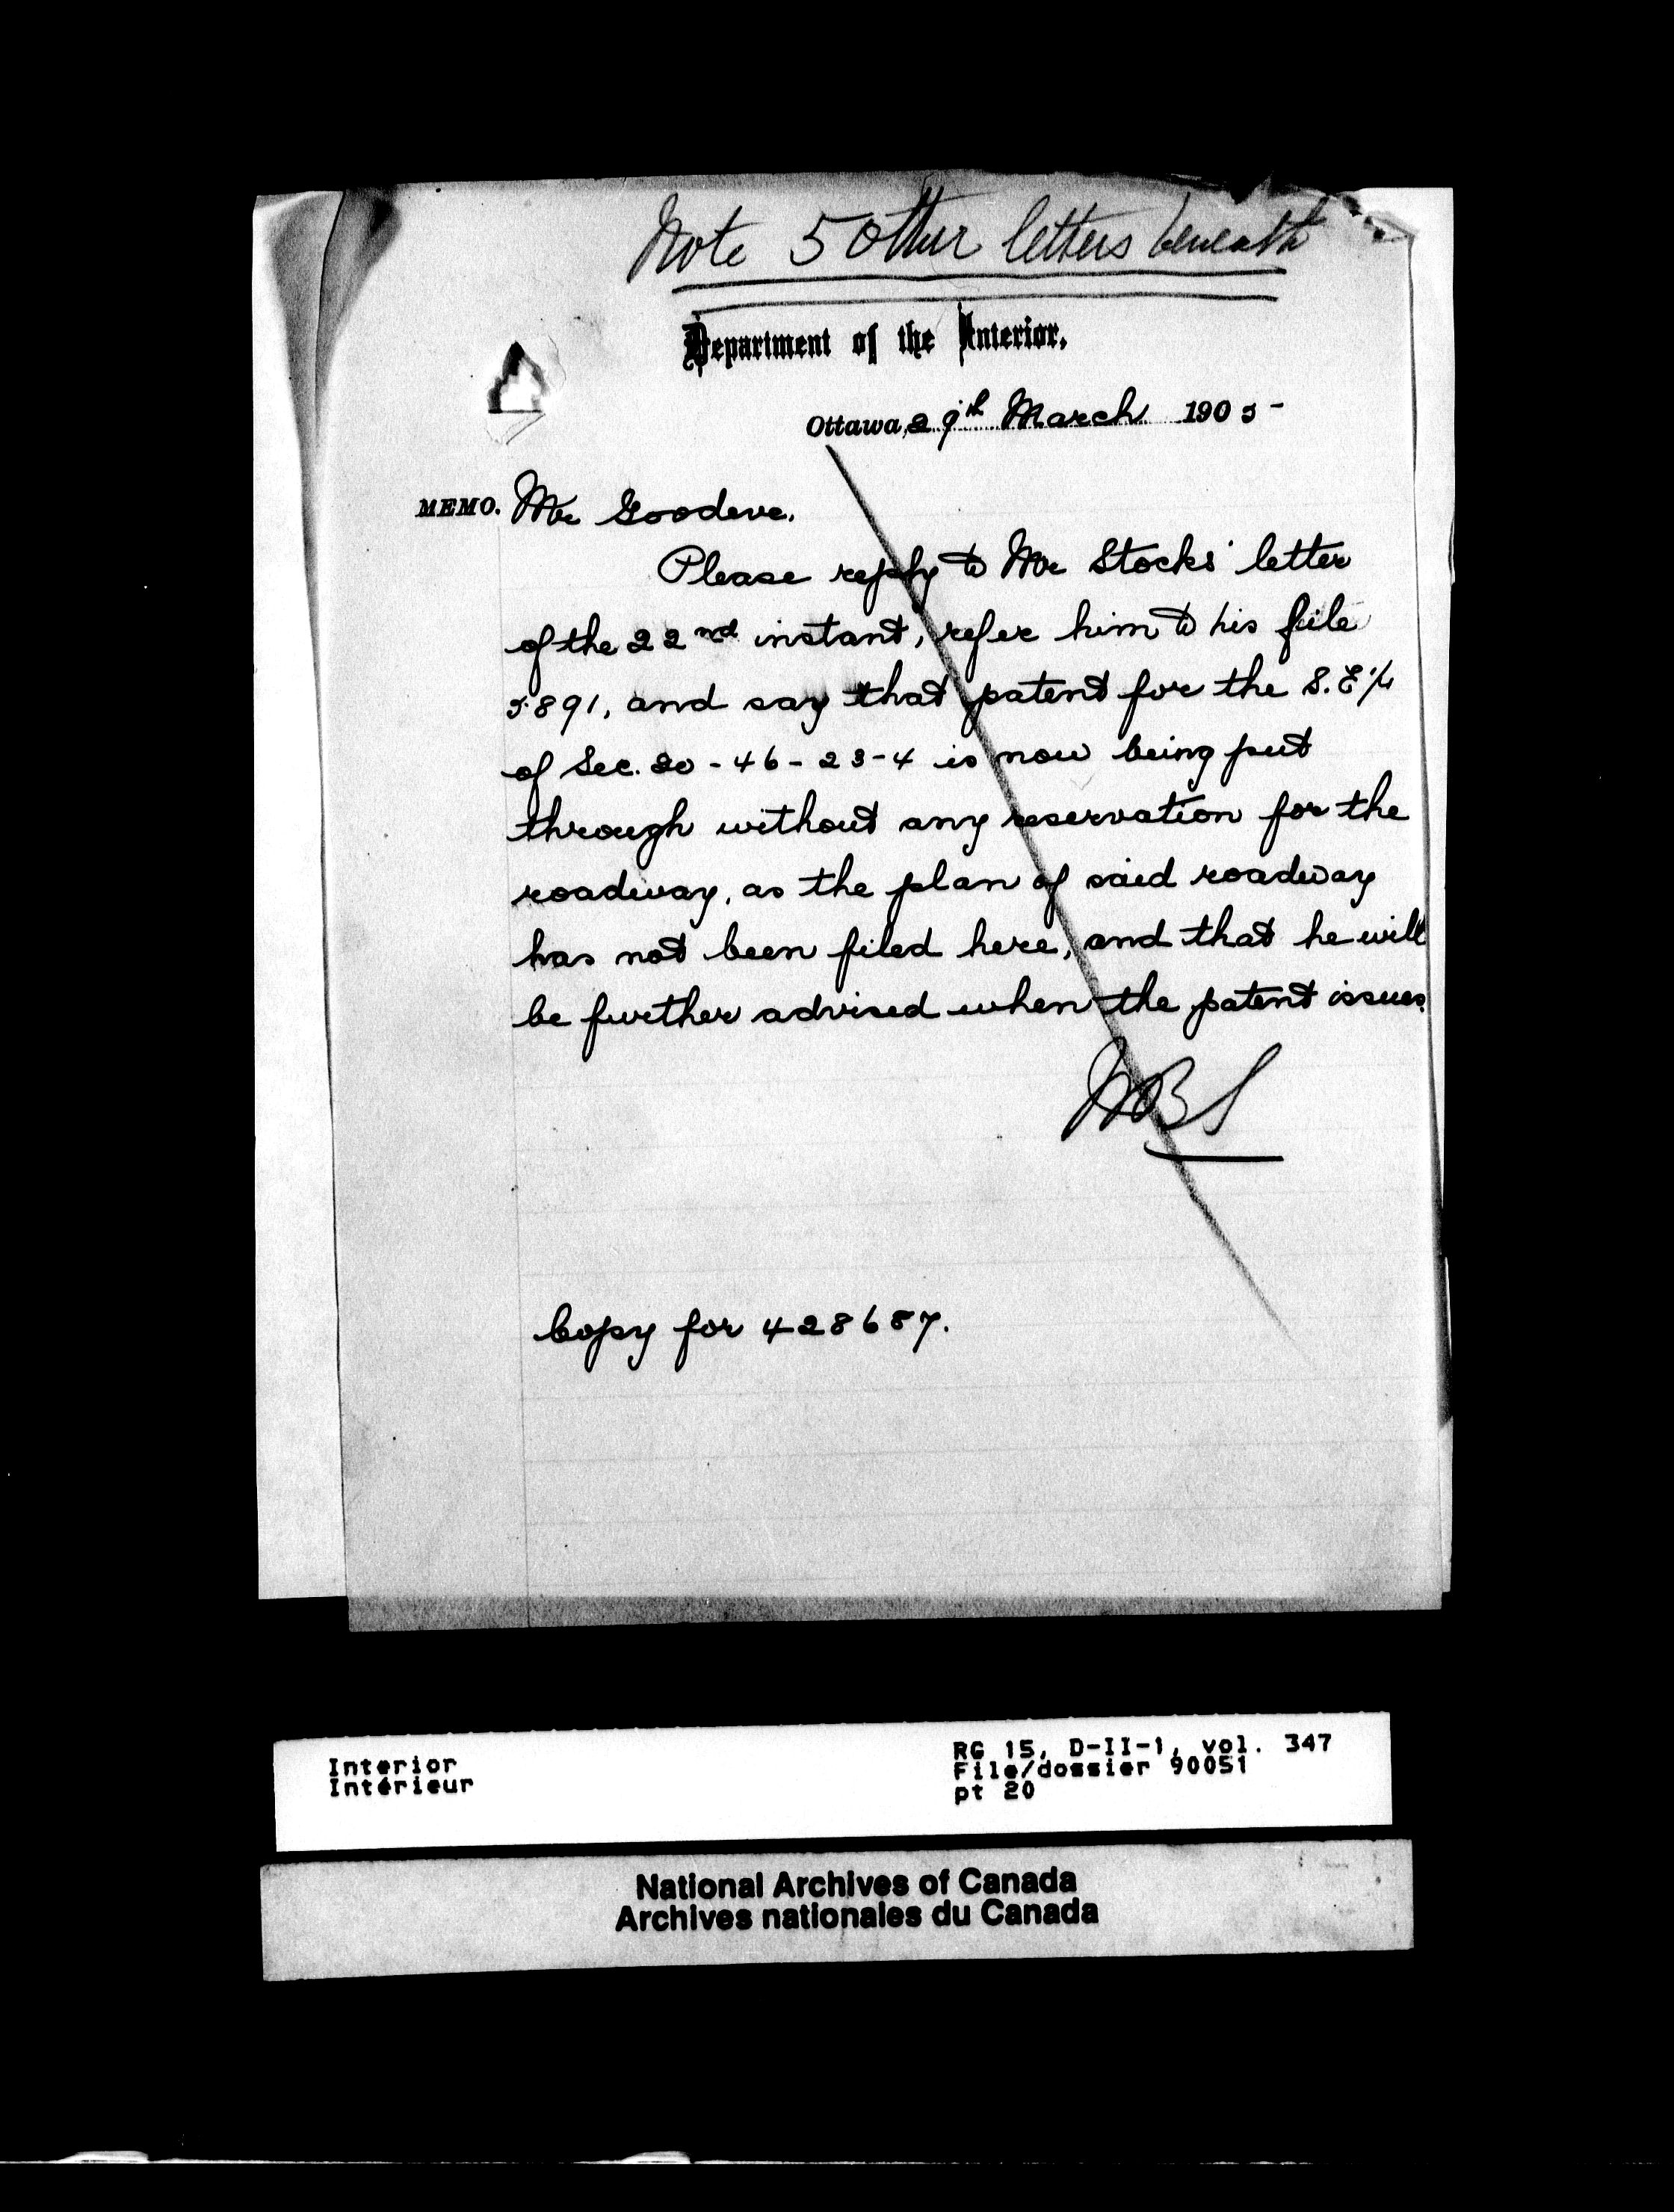 Note 5 other letters beneath
Department of the Interior.
Ottawa, 29th March 1905-
MEMO. Mr Goodeve.
Please reply to Mr Stocks' letter
of the 22nd instant, refer him to his file
5891, and say that patent for the S.E.1/4
of Sec. 20-46-23-4 is now being put
through without any reservation for the
roadway, as the plan of said roadway
has not been filed here, and that he will
be further advised when the patent issues.
Copy for 428687.
Interior
Intérieur
RG 15, D-II-1, vol. 347
File/dossier 90051
pt 20
National Archives of Canada
Archives nationales du Canada